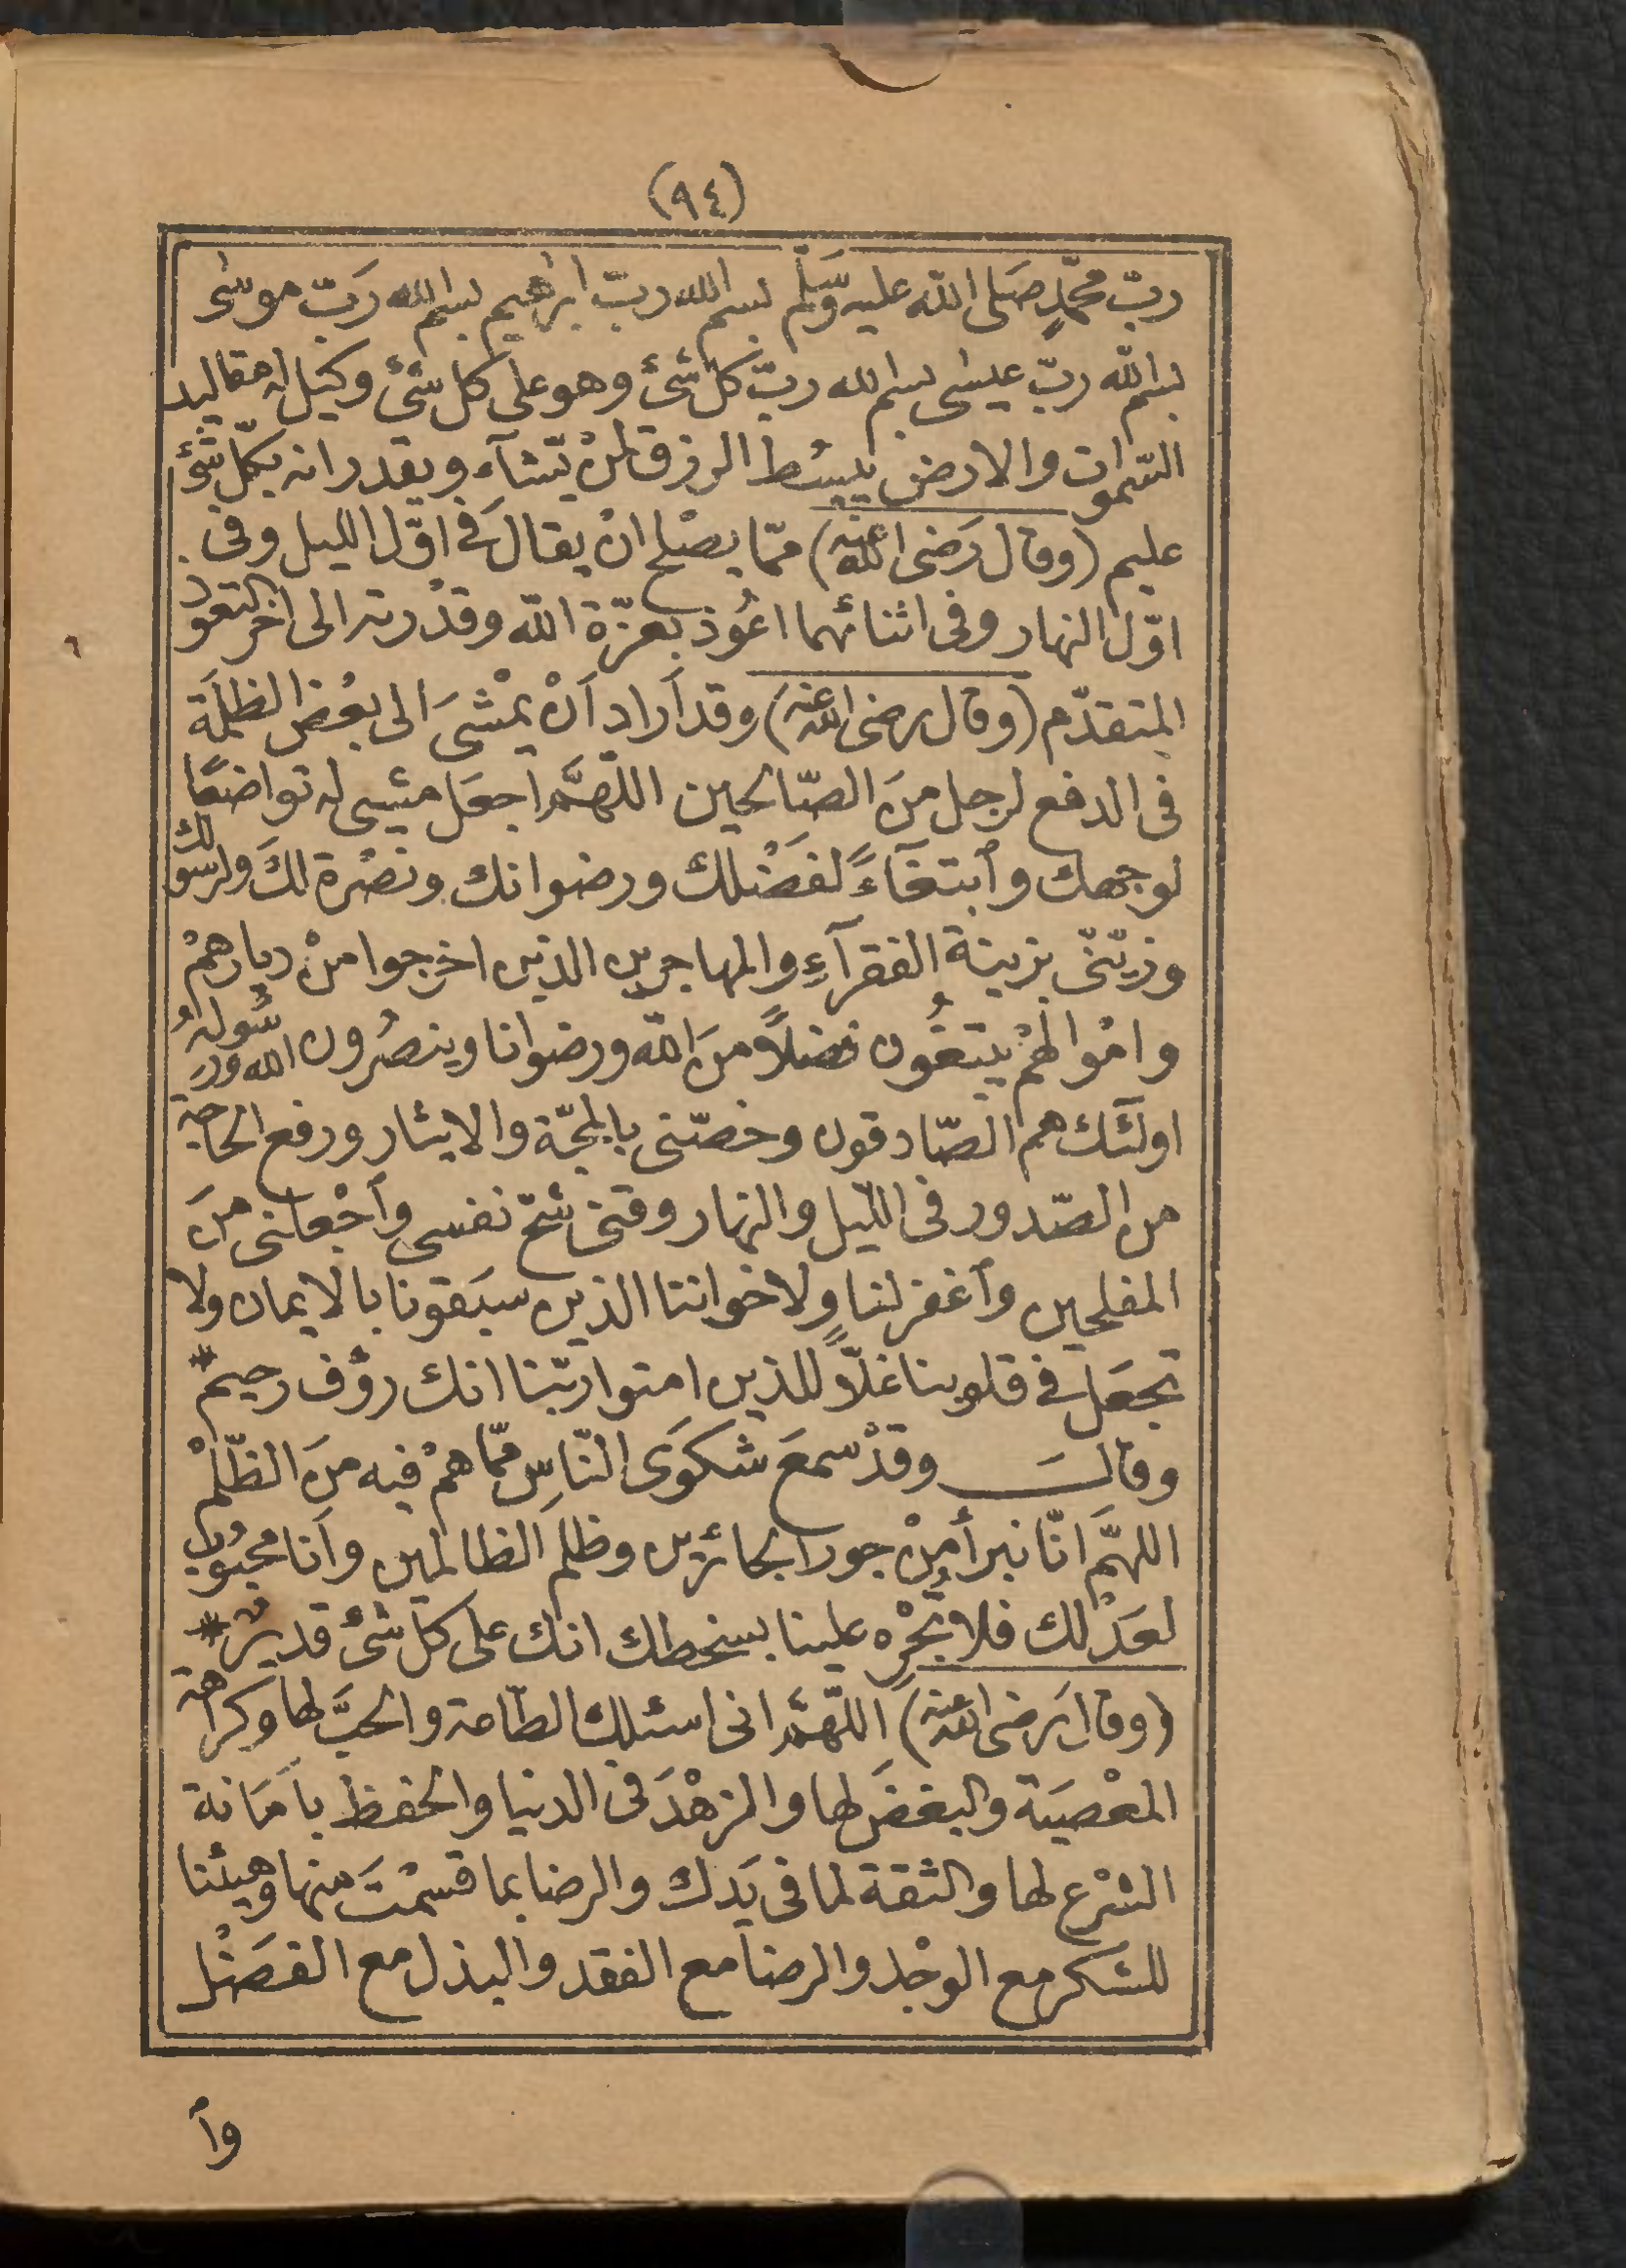 (٩٤)
ربّ محمّدٍ صَلى الله عليه وَسَلّم بسم الله ربّ ابراهيم بسم الله رَبّ موسٰى
بسم الله ربّ عيسٰى بسم الله ربّ كل شئ وهو على كل شئ وكيل له مقاليد
السّمٰوات والارض يبسُط الرزق لمنْ يّشآء ويقدر انه بكلّ شئ
عليم (وقال رَضى الله عنه) ممّا يصْلح انْ يقال فى اوّل الليل وفى
اوّل النهار وفى اثنائهما اعُوذ بعزّة الله وقدْرته الى اٰخر التعوذ
المتقدّم (وقال رضى الله عنه) وقد اَراد اَنْ يمْشىَ الى بعْض الظلَمة
فى الدفع لرجل منَ الصّالحين اللّهمَّ اجعَل مشيى له تواضعًا
لوجهك وٱبتغآءً لفضْلك ورضوانك ونصْرة لكَ ولرسولك
وزيّنّى بزينة الفقرآءِ والمهاجرين الذين اخرجوا منْ ديارهمْ
وامْوالهمْ يبتغُون فضلاً منَ الله ورضوانا وينصُرون الله ورسُولهُ
اولٓئك هم الصّادقون وخصّنى بالمحبّة والايثار ورفع الحاجة
من الصّدور فى الليل والنهار وقنى شحّ نفسى وٱجْعلنى منَ
المفلحين وٱغفر لنا ولاخواننا الذين سبَقونا بالايمان ولا
تجعَل فى قلوبنا غلّاً للذين امنوا ربّنا انك رؤف رحيم *
وقالَ وقدْ سمعَ شكوَى النّاس ممّا همْ فيه منَ الظّلمْ
اللهمَّ انّا نبرأ منْ جور الجائرين وظلم الظالمين وأنا محبُوب
لعَدْلك فلا تُجْرِه علينا بسخطك انك على كل شئ قدير *
(وقال رَضى الله عنه) اللّهمَّ انى اسئلك الطّاعة والحبَّ لها وكراهة
المعْصيَة والبغضَ لها والزهْدَ فى الدنيا والحفظ بأمَانة
الشرْع لها والثقة لما فى يَدك والرضا بما قسمْتَ منها وهيئنا
للشكر مع الوجْد والرضا مع الفقد والبذل مع الفضْل
وٱ